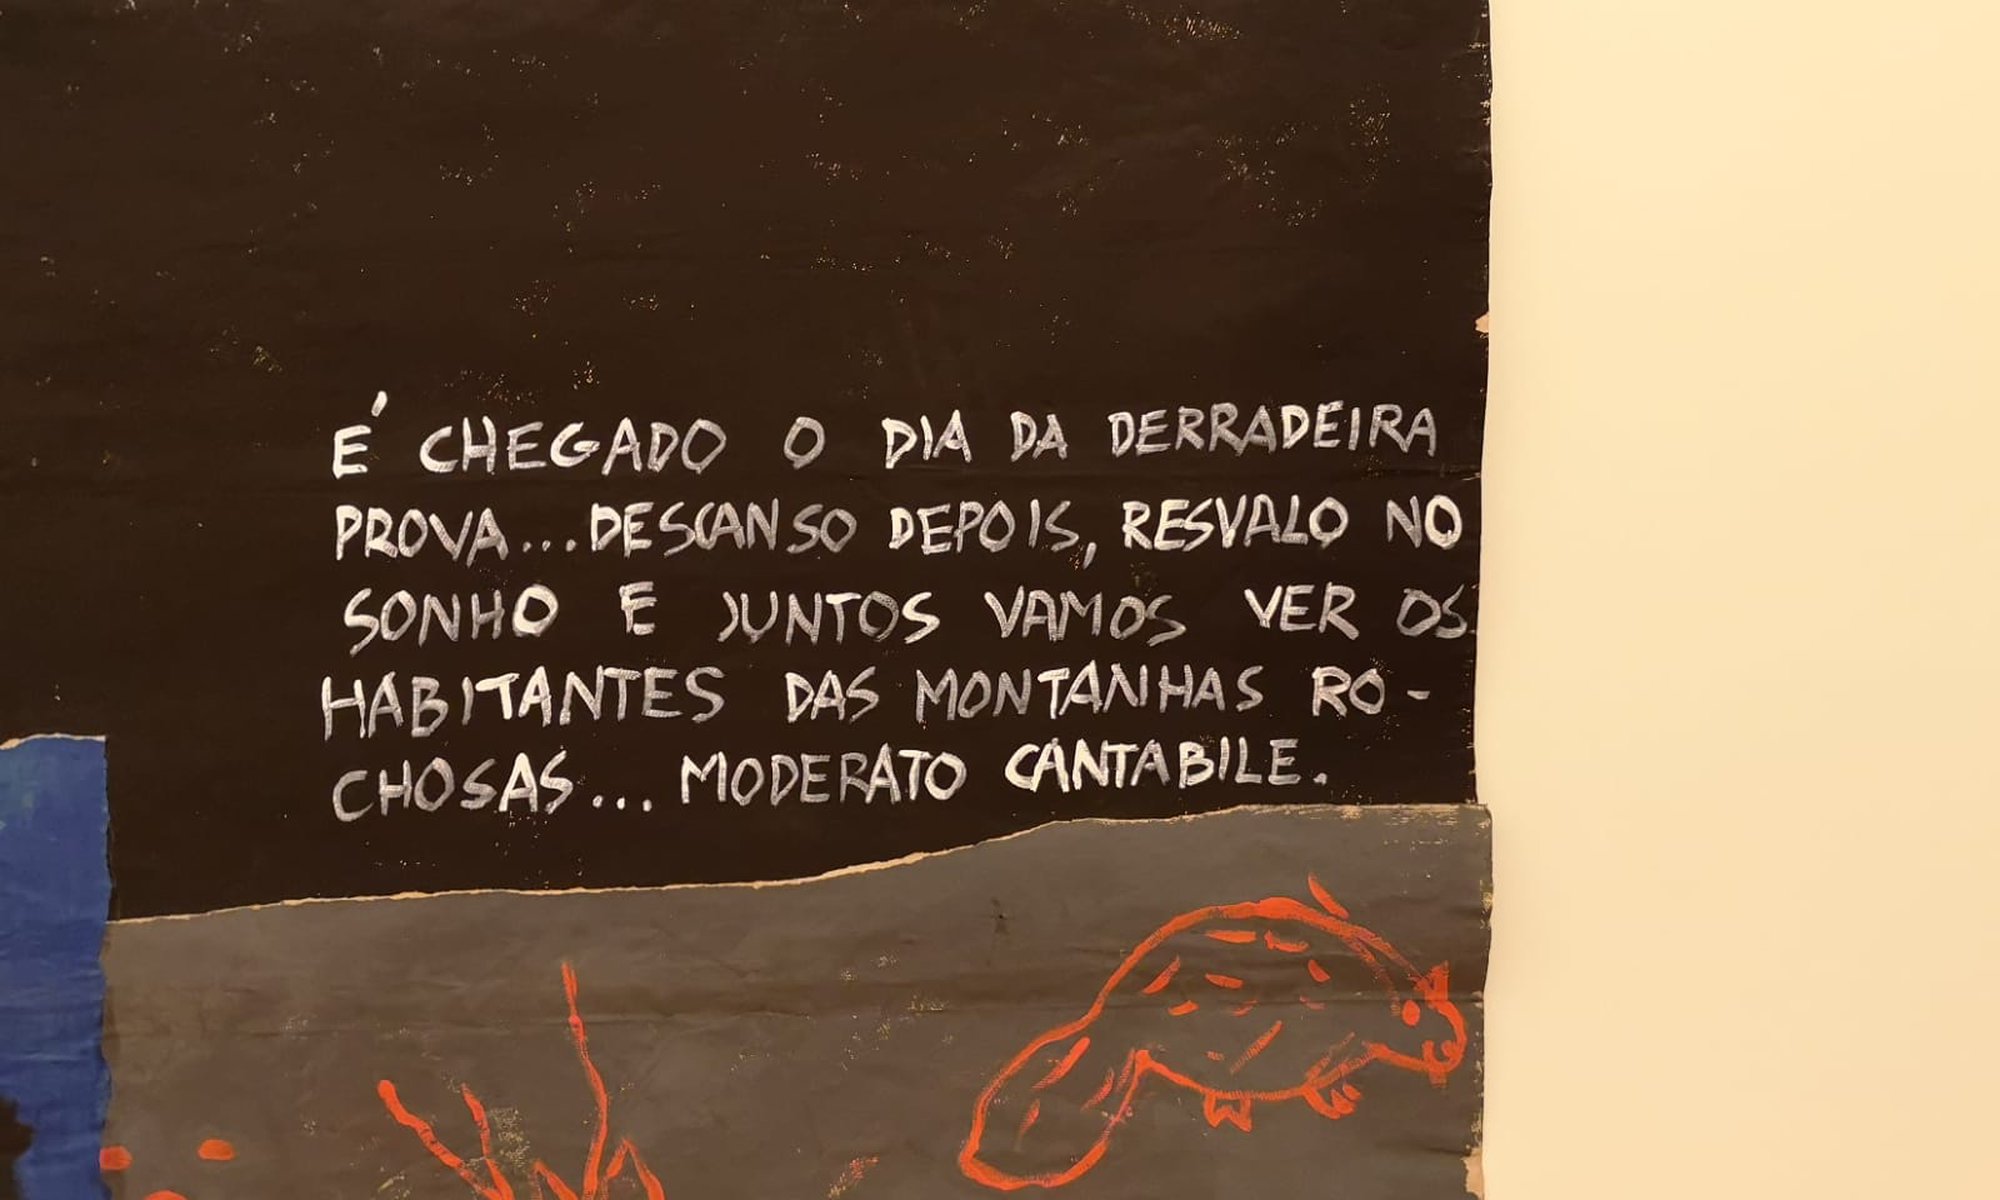 É CHEGADO O DIA DA DERRADEIRA
PROVA...DESCANSO DEPOIS, RESVALO NO
SONHO E JUNTOS VAMOS VER OS
HABITANTES DAS MONTANHAS RO-
CHOSAS... MODERATO CANTABILE.